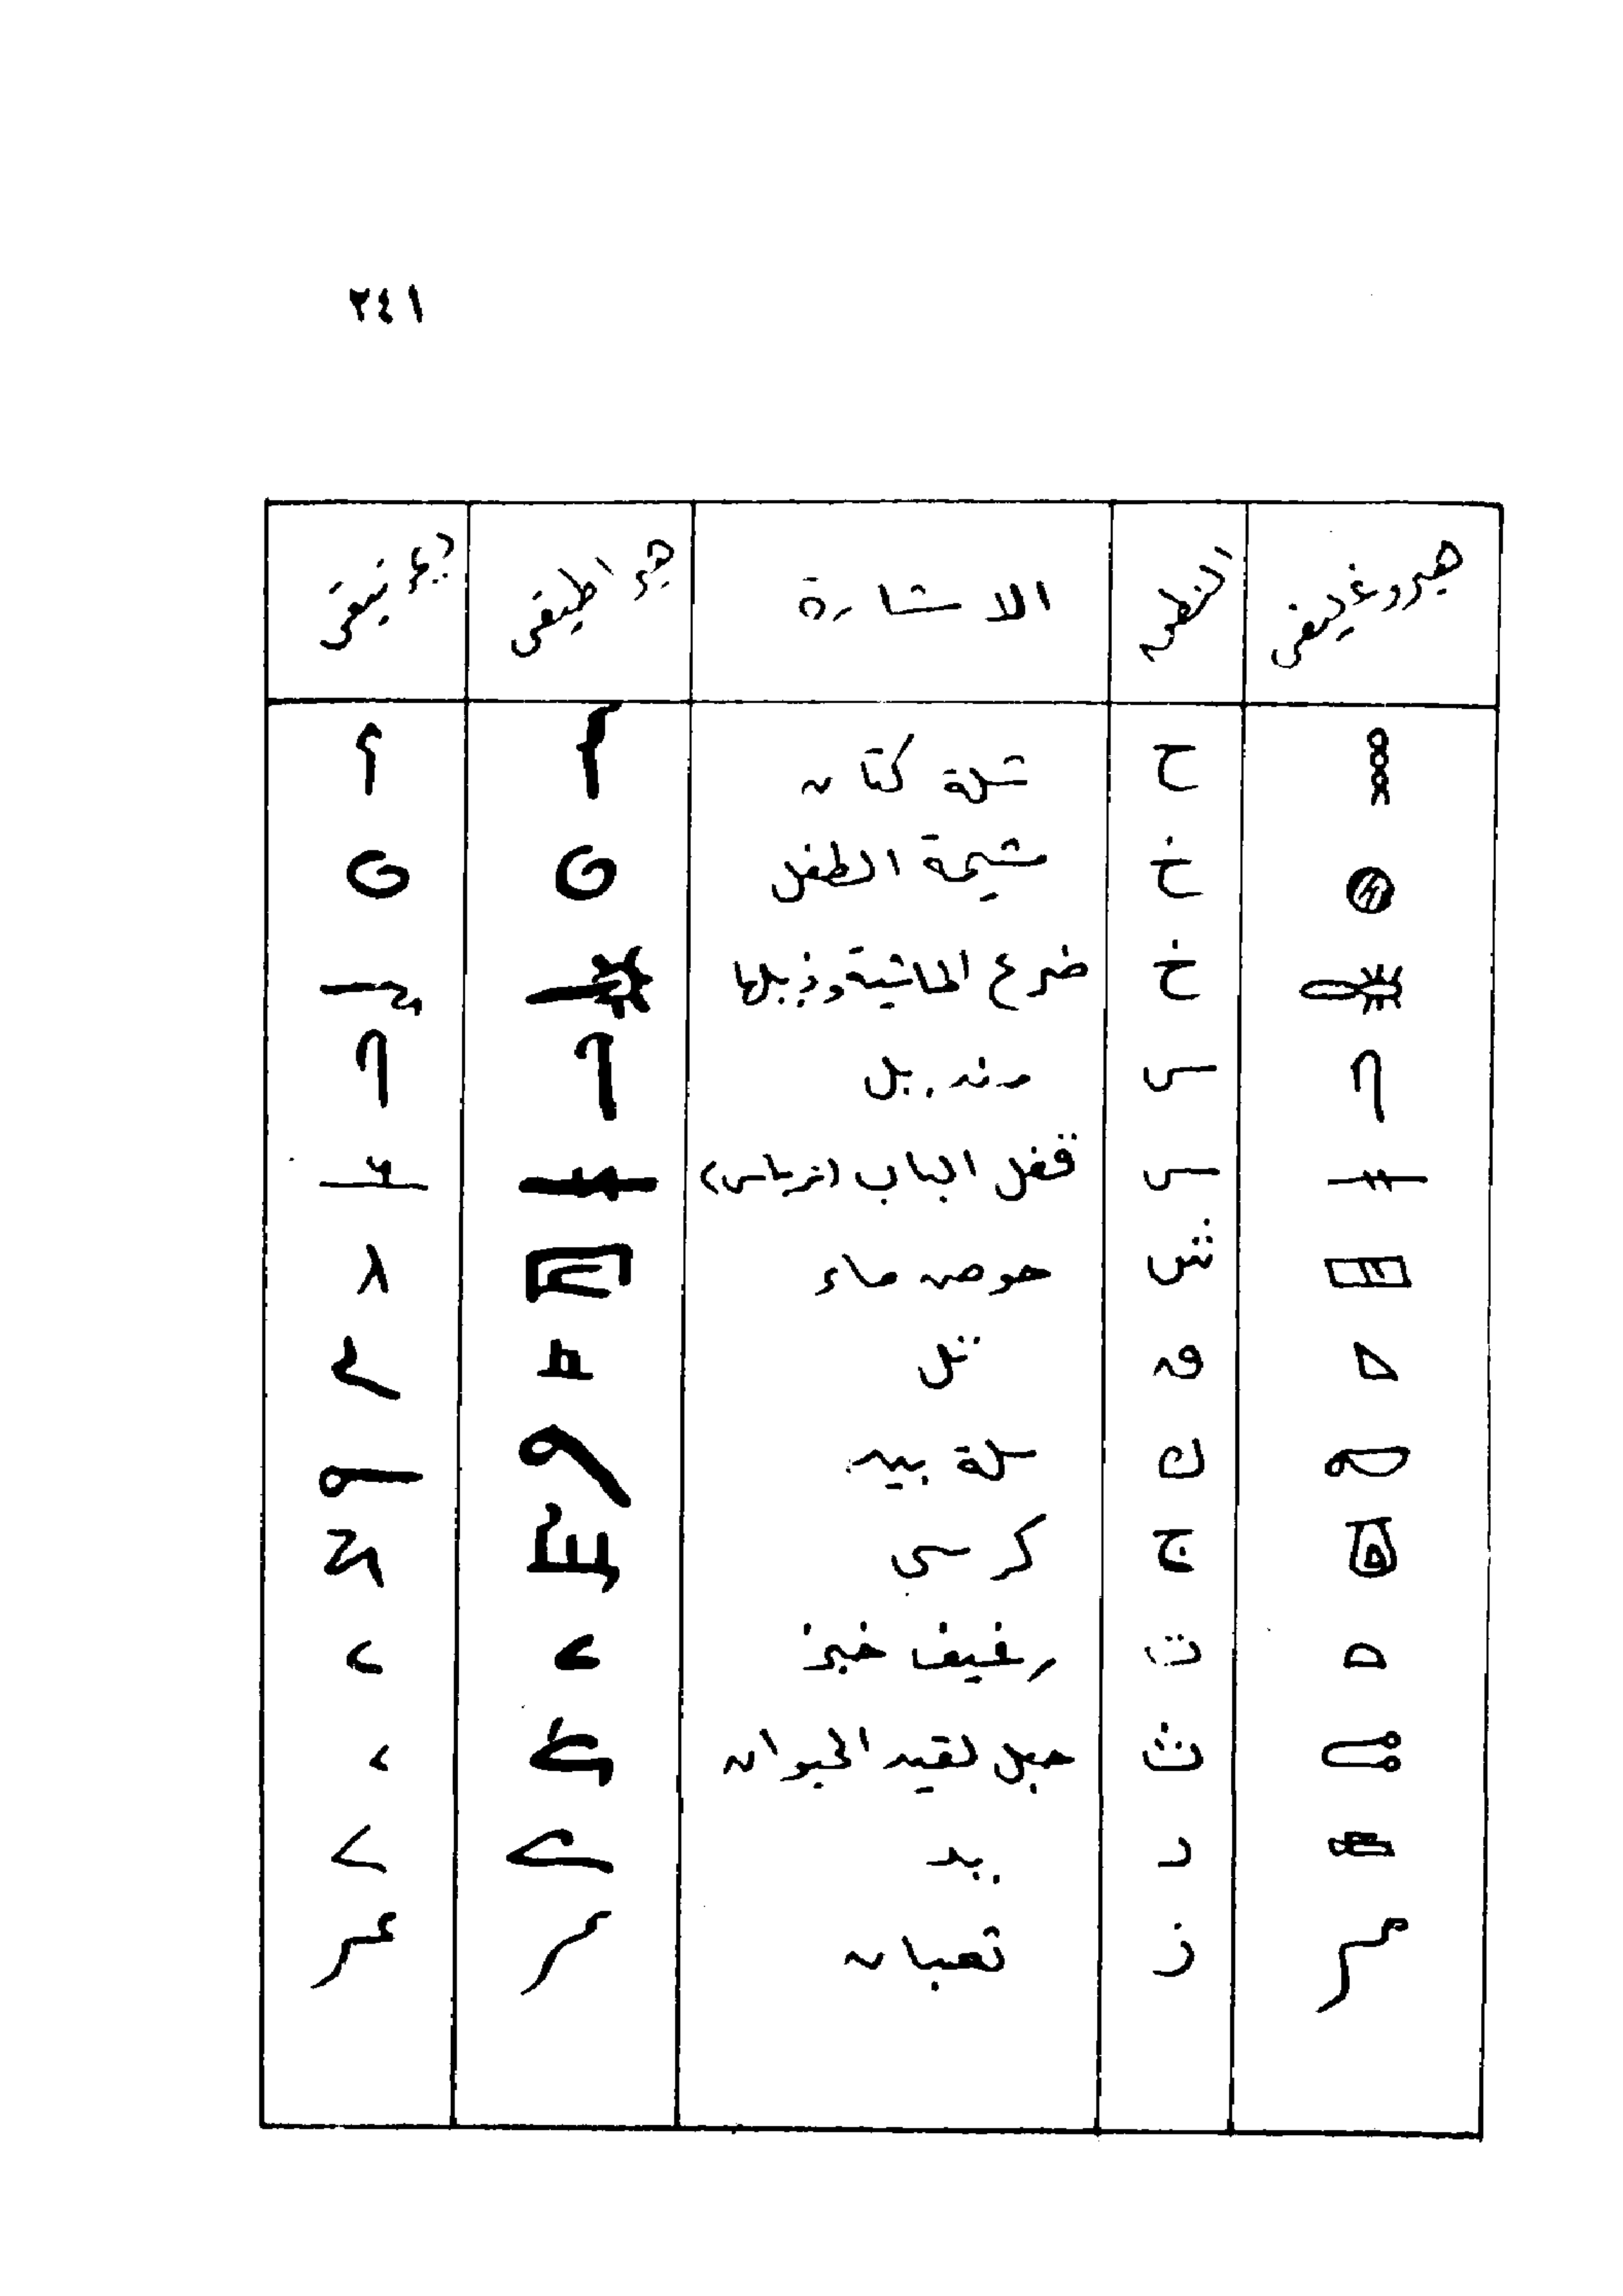 ٢٤١
هيروغليفى النطق الاشارة هيراطيقى ديموتيقى
ح شلة كتان
خ مشيمة الطفل
خ ضرع الماشية وذيلها
س منديل
س قفل الباب (ترباس)
ش حوض ماء
ق تل
ك سلة بيد
ج كرسى
ت رغيف خبز
ث حبل لقيد الحيوان
د يد
ز ثعبان